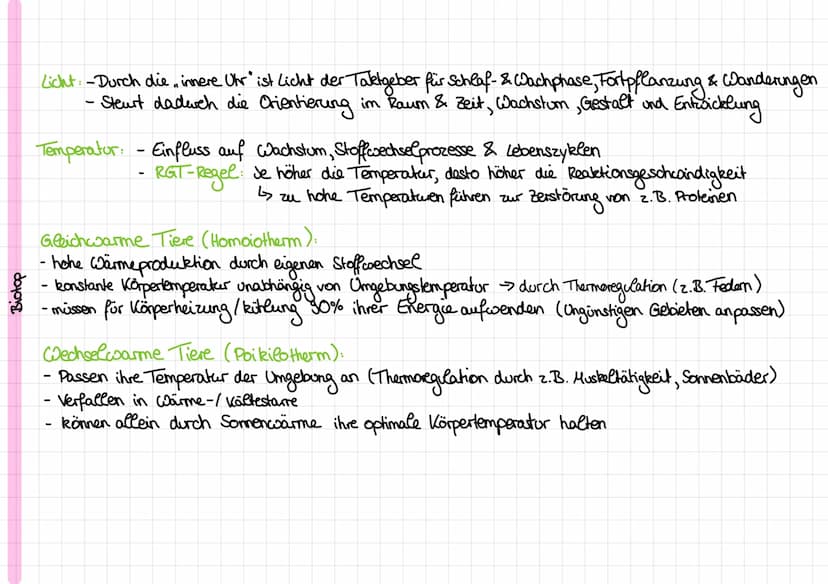 Licht: - Durch die „innere Uhr" ist Licht der Taktgeber für Schlaf- & Wachphase, Fortpflanzung & Wanderungen
- Steurt dadurch die Orientierung im Raum & Zeit, Wachstum, Gestalt und Entwicklung
Temperatur: - Einfluss auf Wachstum, Stoffwechselprozesse & Lebenszyklen
- RGT-Regel: Je höher die Temperatur, desto höher die Reaktionsgeschwindigkeit
↳ zu hohe Temperaturen führen zur Zerstörung von z.B. Proteinen
Gleichwarme Tiere (Homoiotherm):
- hohe Wärmeproduktion durch eigenen Stoffwechsel
- konstante Körpertemperatur unabhängig von Umgebungstemperatur → durch Thermoregulation (z.B. Federn)
- müssen für Körperheizung/kühlung 90% ihrer Energie aufwenden (Ungünstigen Gebieten anpassen)
Wechselwarme Tiere (Poikilotherm):
- Passen ihre Temperatur der Umgebung an (Thermoregulation durch z.B. Muskeltätigkeit, Sonnenbäder)
- Verfallen in Wärme-/ Kältestarre
- können allein durch Sonnenwärme ihre optimale Körpertemperatur halten
Biotop